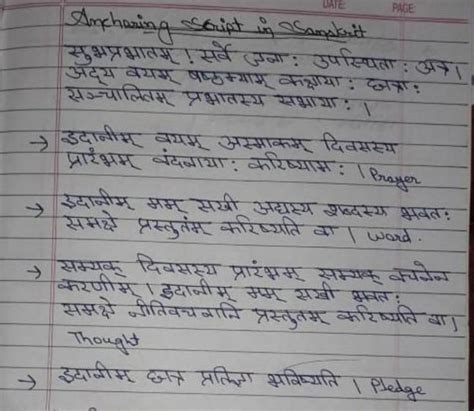 DATE
PAGE
Anchoring Script in Sanskrit
सुभप्रभातम् । सर्वे जना: उपस्थिता: अत्र ।
अद्य वयम् षष्ठम्याम् कक्षाया: छात्रा:
सञ्चालितम् प्रभातस्य सभाया: ।
→ इदानीम् वयम् अस्माकम् दिवसस्य
प्रारंभम् वंदनाया: करिष्याम: । Prayer
→ इदानीम् मम् सखी अद्यस्य शब्दस्य भवत:
समक्षे प्रस्तुतंम् करिष्यति वा । Word.
→ सम्यक् दिवसस्य प्रारंभम् सम्यक् वचनेन
करणीम् । इदानीम् मम् सखी भवत:
समक्षे नीतिवचनानि प्रस्तुतम् करिष्यति वा ।
Thought
→ इदानीम् छात्र प्रतिज्ञा भविष्यति । Pledge